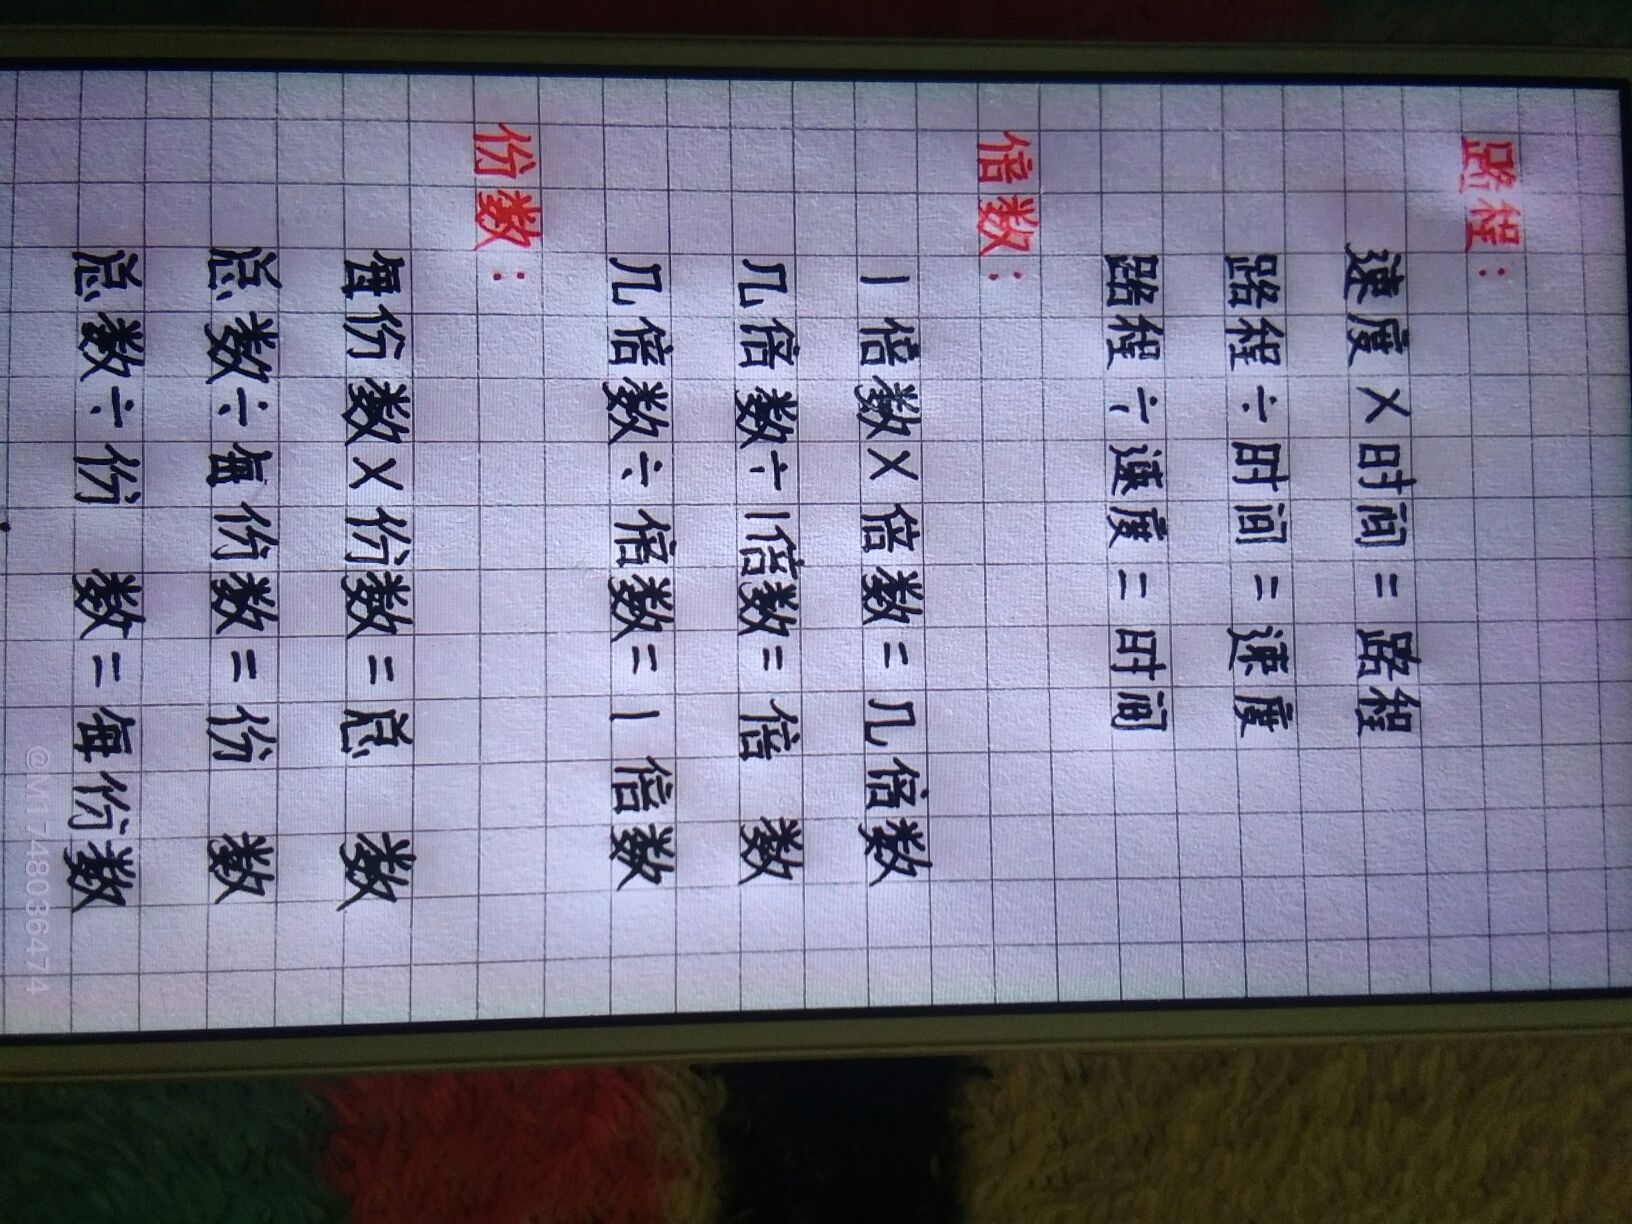 路程：
速度×时间=路程
路程÷时间=速度
路程÷速度=时间
倍数：
1倍数×倍数=几倍数
几倍数÷1倍数=倍数
几倍数÷倍数=1倍数
份数：
每份数×份数=总数
总数÷每份数=份数
总数÷份数=每份数
@M1748036474